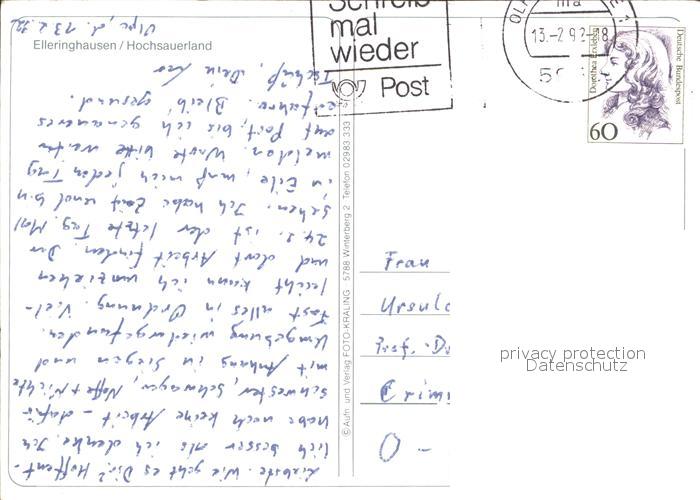 Olpe, d. 13.2.92
Liebste. Wie geht es Dir? Hoffent-
lich besser als ich denke. Ich
habe noch keine Arbeit - dafür
Schwester, Schwager, Neffe + Nichte
mit Anhang in Siegen und
Umgebung wiedergefunden.
Fast alles in Ordnung. Viel-
leicht kann ich umziehen
und dort Arbeit finden. Der
24.2. ist der letzte Tag.
sehen. Ich habe Zeit und bin
in Eile, muß mich jeden Tag
melden. Warte bitte weiter
auf Post, bis ich genaueres
erfahre. Bleib' gesund.
Tschüß, Dein
Elleringhausen / Hochsauerland
© Aufn. und Verlag FOTO-KRALING · 5788 Winterberg 2 Telefon 02983 333
Schreib
mal
wieder
Post
13.-2.92-18
Deutsche Bundespost
60
Frau
Ursula
Prof.-D
Crim
O -
privacy protection
Datenschutz